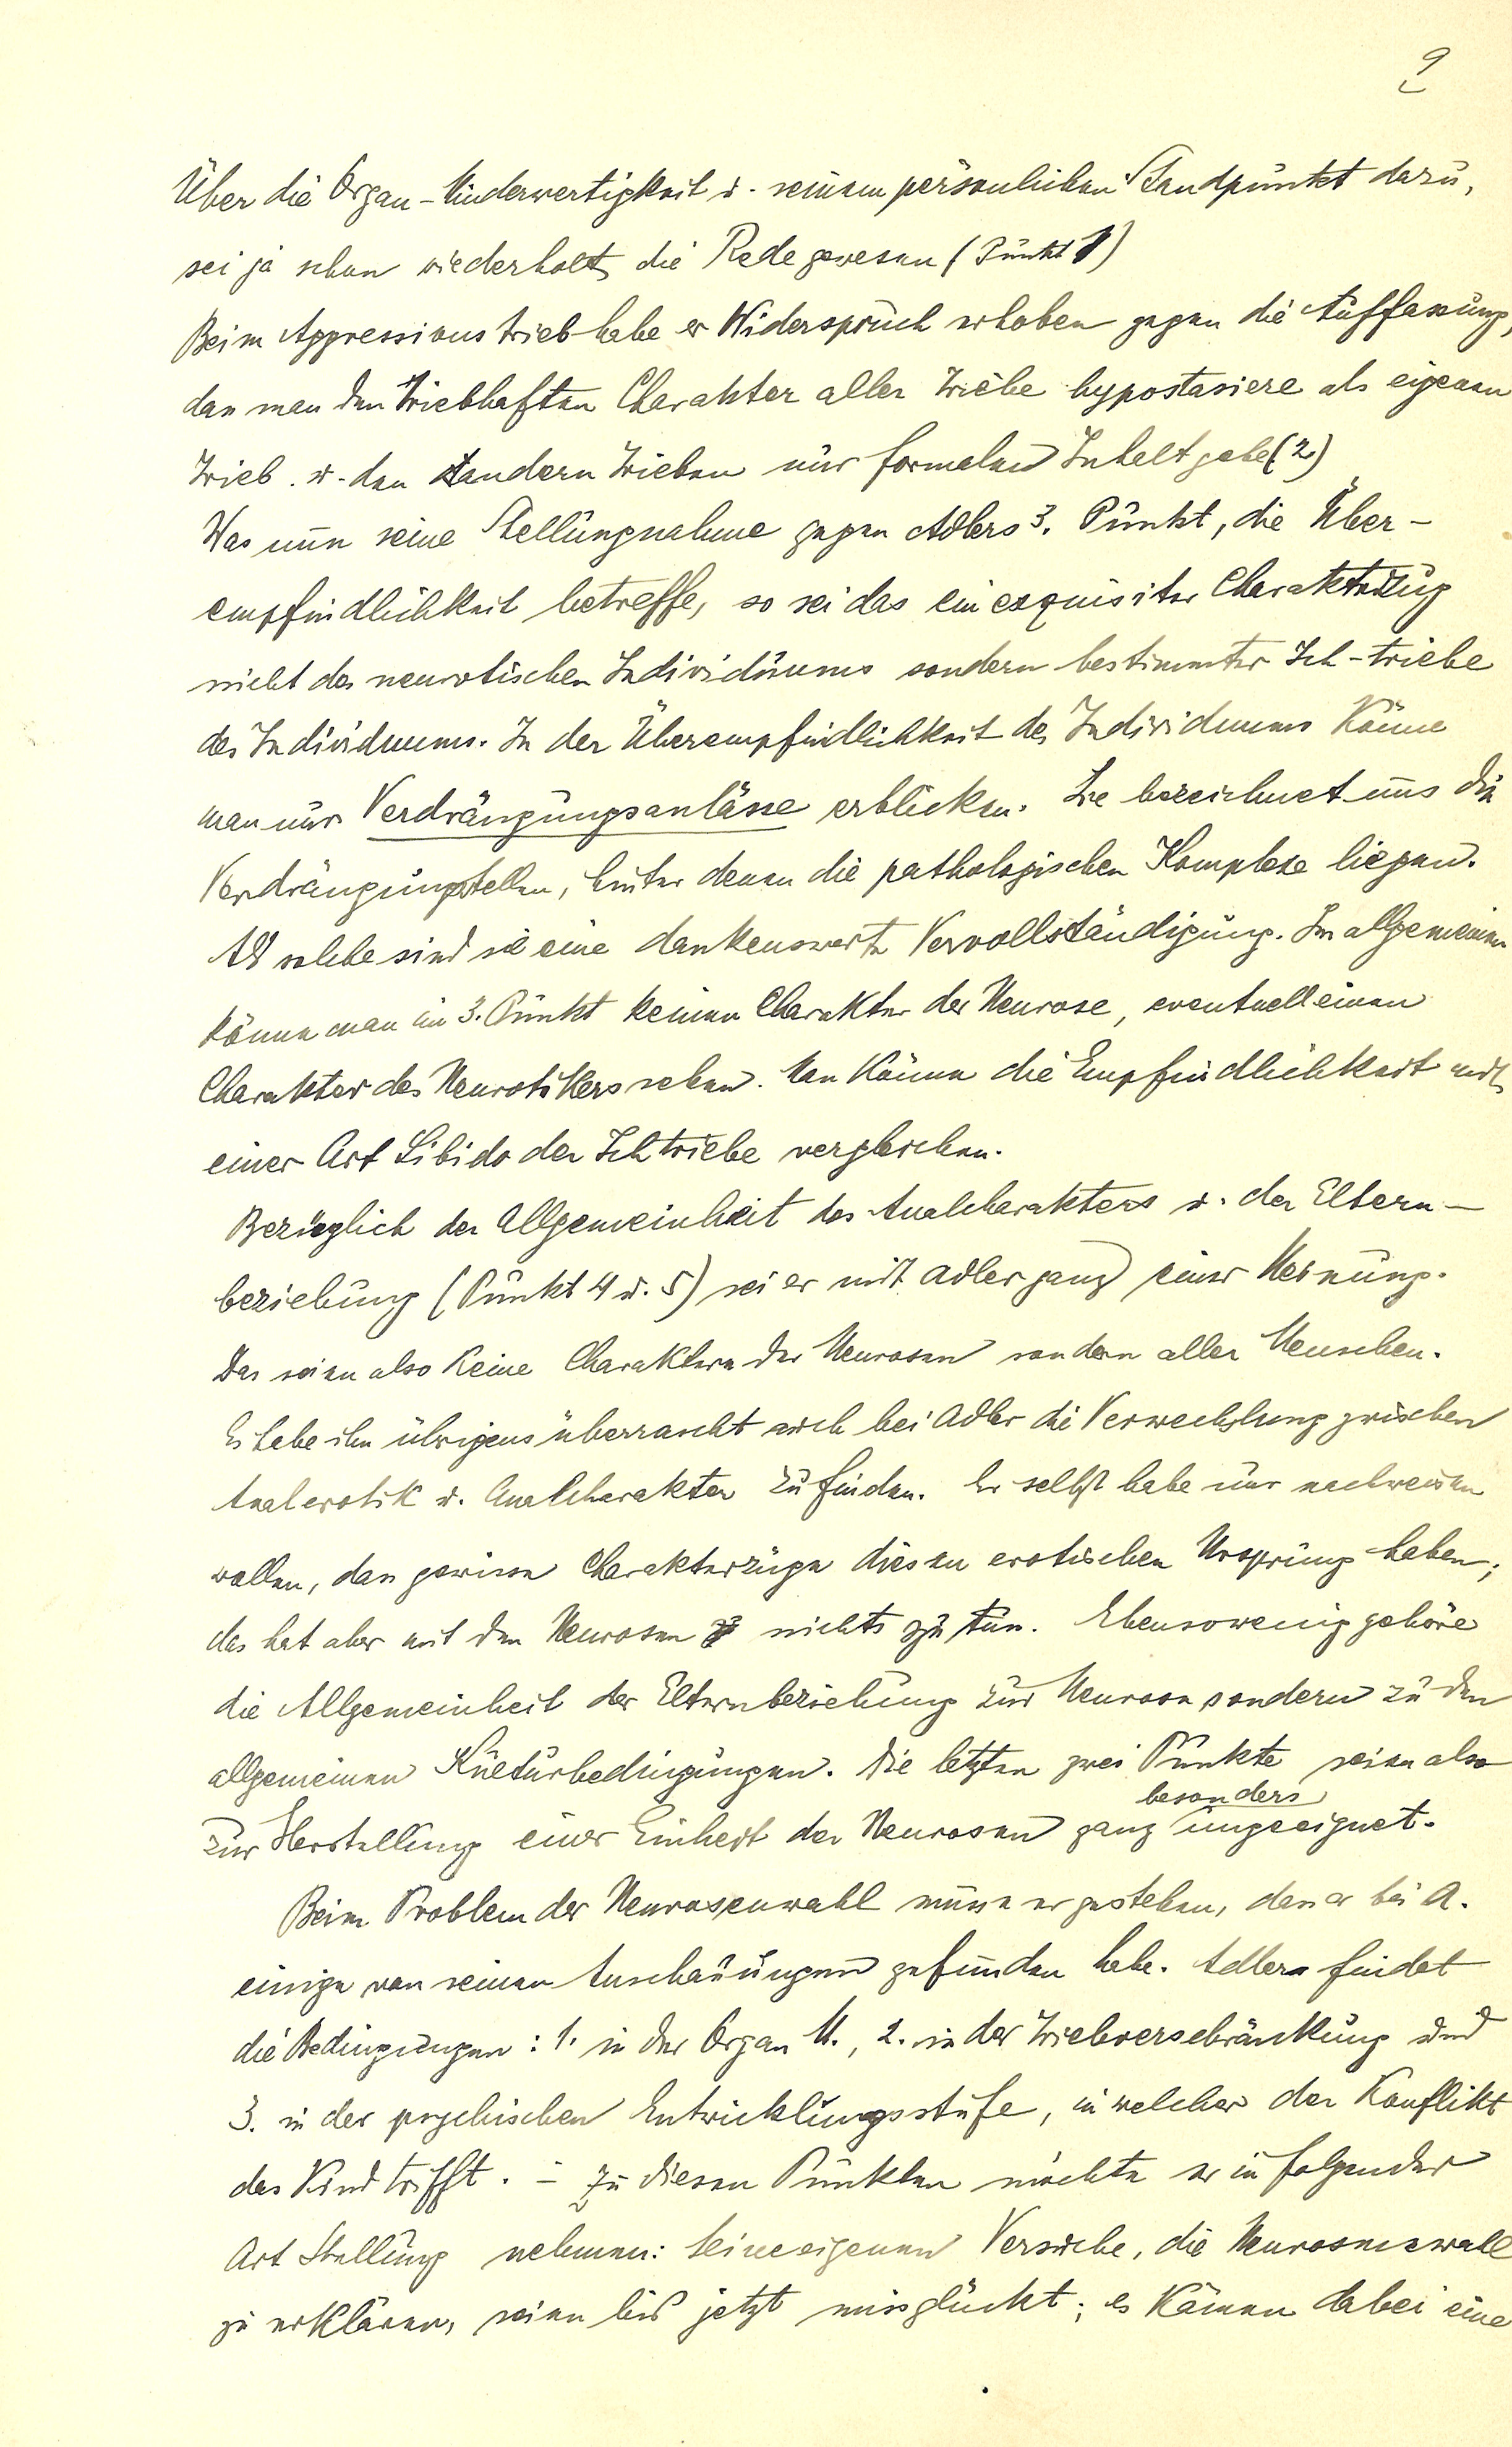 9
Über die Organ-Minderwertigkeit u. seinem persönlichen Standpunkt dazu,
sei ja schon wiederholt die Rede gewesen (Punkt 1)
Beim Aggressionstrieb habe er Widerspruch erhoben gegen die Auffassung,
dass man den triebhaften Charakter aller Triebe hypostasiere als eigenen
Trieb u. den andern Trieben nur formalen Inhalt gebe (2)
Was nun seine Stellungnahme gegen Adlers 3. Punkt, die Über-
empfindlichkeit betreffe, so sei das ein exquisiter Charakterzug
nicht des neurotischen Individuums sondern bestimmter Ich-triebe
des Individuums. In der Überempfindlichkeit des Individuums könne
man nur Verdrängungsanlässe erblicken. Sie bezeichnet uns die
Verdrängungstellen, hinter denen die pathologischen Komplexe liegen.
Als solche sind sie eine dankenswerte Vervollständigung. Im allgemeinen
könne man im 3. Punkt keinen Charakter der Neurose, eventuell einen
Charakter des Neurotikers sehen. Man könne die Empfindlichkeit mit
einer Art Libido der Ichtriebe vergleichen.
Bezüglich der Allgemeinheit des Analcharakters u. der Eltern-
beziehung (Punkt 4 u. 5) sei er mit Adler ganz einer Meinung.
Das seien also keine Charaktere der Neurosen sondern aller Menschen.
Es habe ihn übrigens überrascht auch bei Adler die Verwechslung zwischen
Analerotik u. Analcharakter zu finden. Er selbst habe nur nachweisen
wollen, dass gewisse Charakterzüge diesen erotischen Ursprung haben;
das hat aber mit den Neurosen nichts zu tun. Ebensowenig gehöre
die Allgemeinheit der Elternbeziehung zur Neurose sondern zu den
allgemeinen Kulturbedingungen. Die letzten zwei Punkte seien also
zur Herstellung einer Einheit der Neurosen ganz besonders ungeeignet.
Beim Problem der Neurosenwahl müsse er gestehen, dass er bei A.
einige von seinen Anschauungen gefunden habe. Adler findet
die Bedingungen: 1. in der Organ M., 2. in der Triebverschränkung und
3. in der psychischen Entwicklungsstufe, in welcher der Konflikt
das Kind trifft. – Zu diesen Punkten möchte er in folgender
Art Stellung nehmen: Seine eigenen Versuche, die Neurosenwahl
zu erklären, seien bis jetzt missglückt; es kämen dabei eine